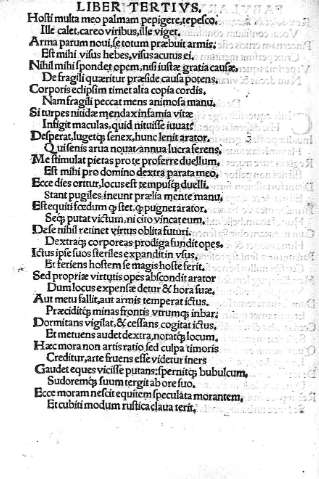 LIBER TERTIVS.
Hosti multa meo palmam pepigere, tepesco,
Ille calet, careo viribus, ille viget.
Arma parum noui, se totum præbuit armis:
Est mihi visus hebes, visus acutus ei.
Nihil mihi spondet opem, nisi iustæ gratia causæ,
De fragili quæritur præside causa potens.
Corporis eclipsim timet alta copia cordis,
Nam fragili peccat mens animosa manu.
Si turpes nitidæ mendax infamia vitæ
Infigit maculas, quid nituisse iuuat?
Desperat, lugetq; senex, hunc lenit arator.
Qui senis arua nouat, annua lucra serens,
Me stimulat pietas pro te proferre duellum,
Est mihi pro domino dextra parata meo,
Ecce dies oritur, locus est tempusq; duelli.
Stant pugiles, ineunt prælia mente manu,
Est equiti fœdum q; stet, q; pugnet arator.
Seq; putat victum, ni cito vincat eum,
De se nihil retinet virtus oblita futuri.
Dextraq; corporeas prodiga fundit opes.
Ictus ipse suos steriles expandit in vsus,
Et feriens hostem se magis hoste ferit.
Sed propriæ virtutis opes abscondit arator
Dum locus expensæ detur & hora suæ.
Aut metu fallit, aut armis temperat ictus.
Præciditq; minas frontis vtrumq; inbar:
Dormitans vigilat, & cessans cogitat ictus,
Et metuens audet dextra, notatq; locum.
Hæc mora non artis ratio sed culpa timoris
Creditur, arte fruens esse videtur iners
Gaudet eques vicisse putans; spernitq; bubulcum,
Sudoremq; suum tergit ab ore suo.
Ecce moram nescit equitem speculata morantem,
Et cubiti modum rustica claua terit,